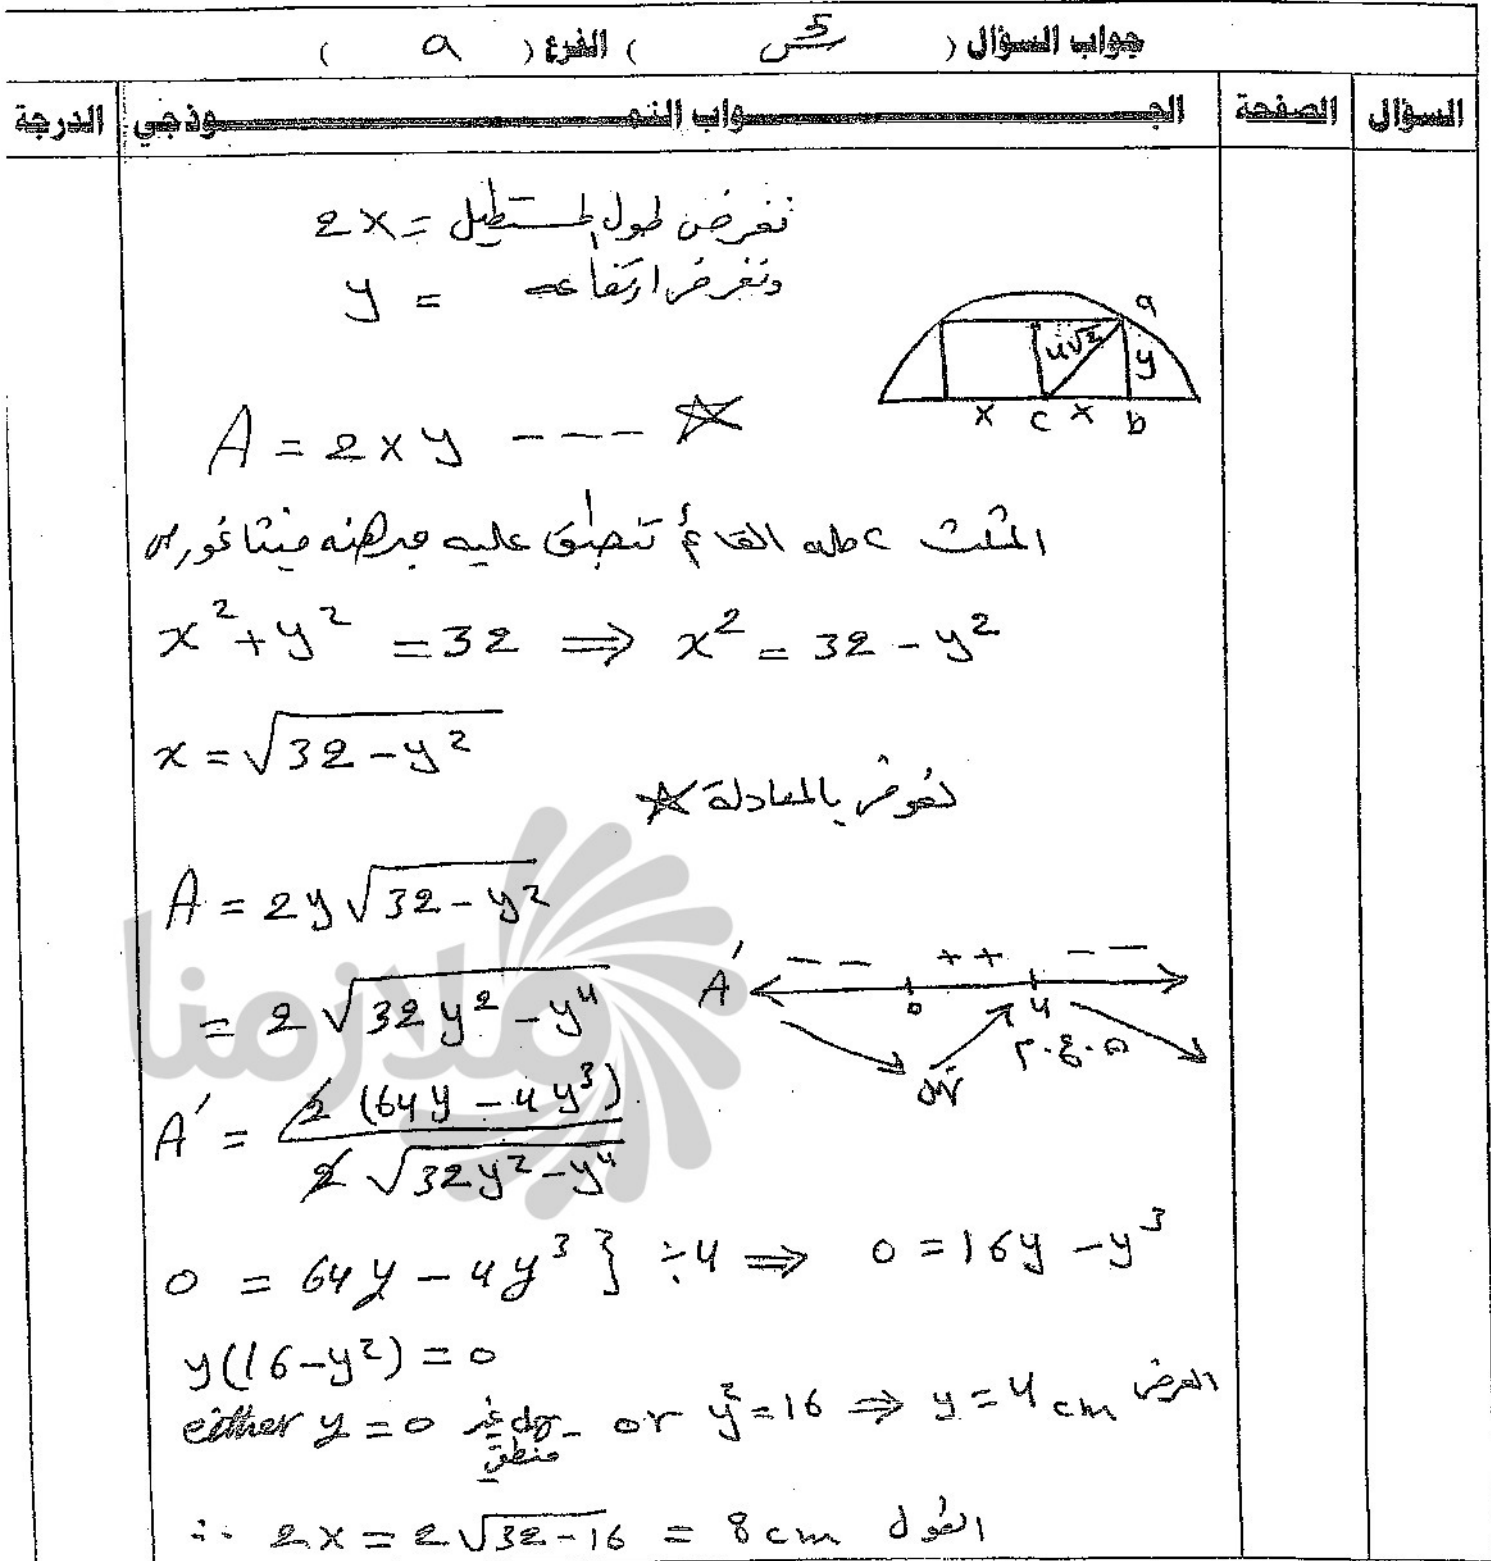 جواب السؤال ( ) الفرع ( a )
السؤال الصفحة الجـــواب النمـــوذجي الدرجة
نفرض طول المستطيل = 2x
ونفرض ارتفاعه = y
a
4√2 y
x c x b
A = 2xy ---- ☆
المثلث القائم تنطبق عليه مبرهنة فيثاغورس
x² + y² = 32 ⇒ x² = 32 - y²
x = √(32 - y²)
نعوض بالمعادلة ☆
A = 2y√(32 - y²)
= 2√(32y² - y⁴)
A' -- ++ --
0 4
ن.ع.م
A' = 2(64y - 4y³) / 2√(32y² - y⁴)
0 = 64y - 4y³ } ÷4 ⇒ 0 = 16y - y³
y(16 - y²) = 0
either y = 0 غير منطقي or y² = 16 ⇒ y = 4 cm العرض
∴ 2x = 2√(32-16) = 8 cm الطول
ملازمنا